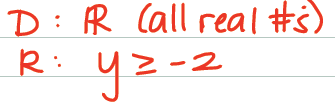 D: ℝ (all real #s)
R: y ≥ -2